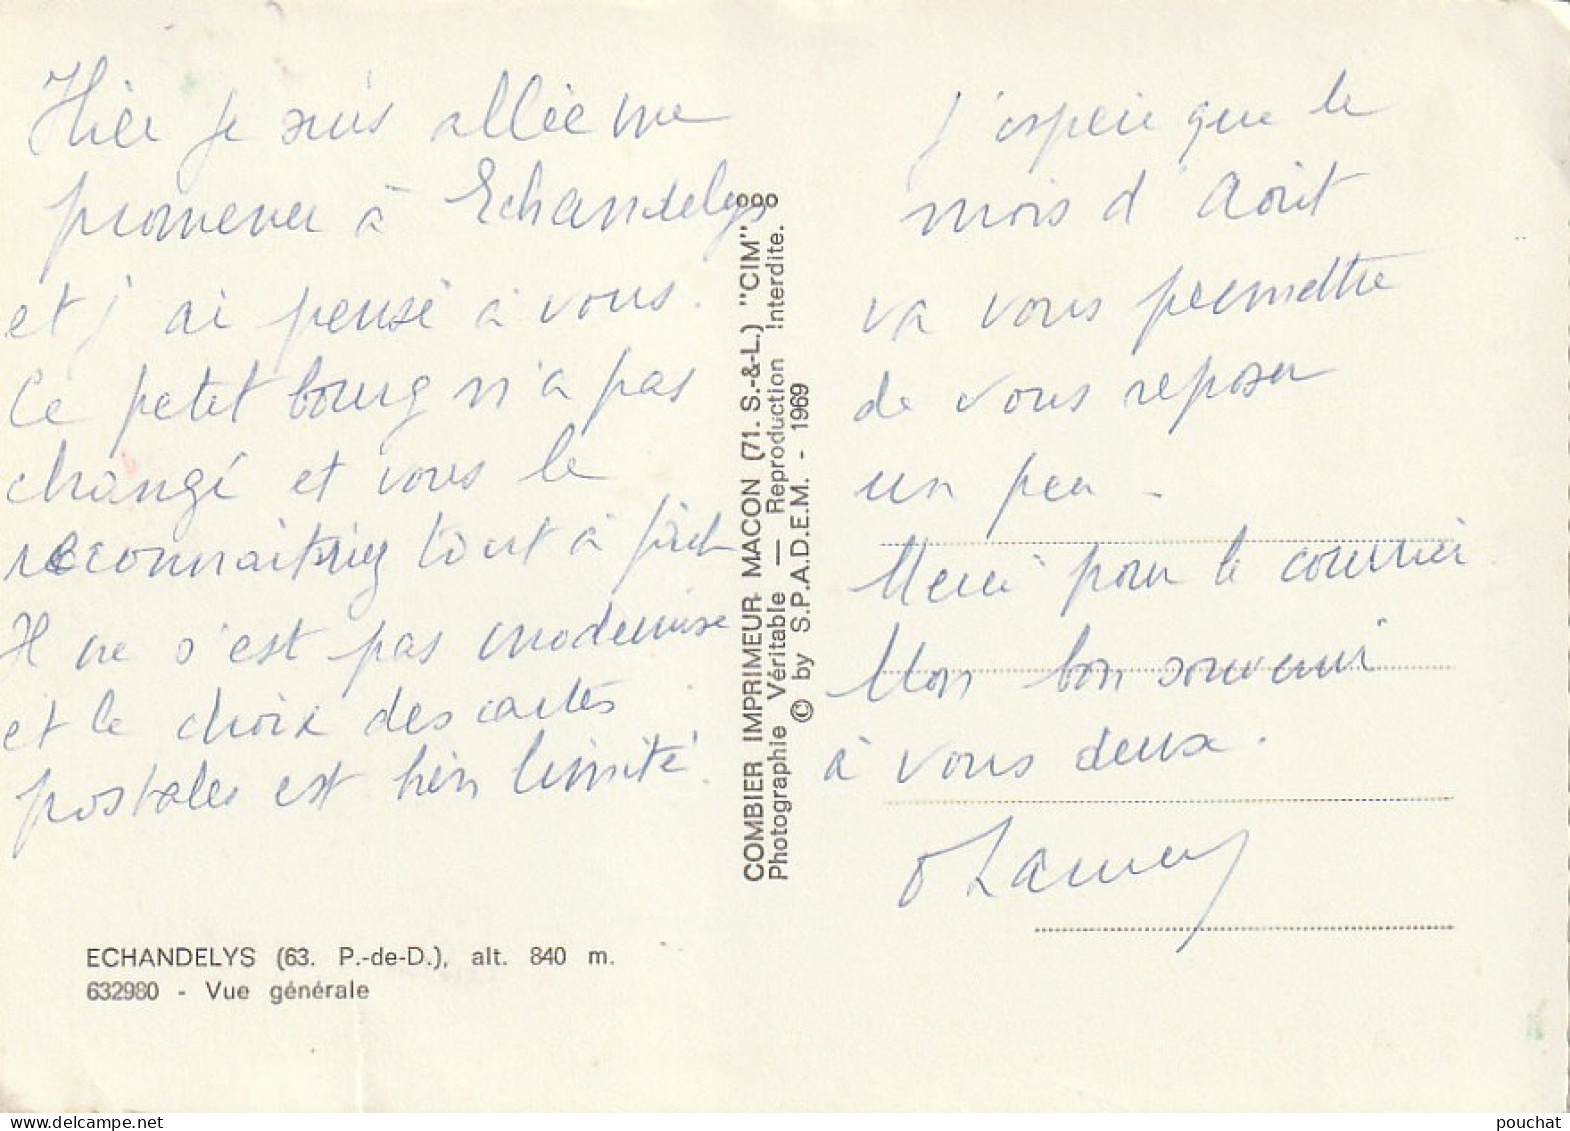 Hier je suis allée me
promener à Echandelys
et j'ai pensé à vous.
Ce petit bourg n'a pas
changé et vous le
reconnaitriez tout à fait
Il ne s'est pas modernisé
et le choix des cartes
postales est bien limité.
ECHANDELYS (63. P.-de-D.), alt. 840 m.
632980 - Vue générale
COMBIER IMPRIMEUR MACON (71. S.-&-L.) "CIM"
Photographie Véritable — Reproduction Interdite.
© by S.P.A.D.E.M. - 1969
J'espère que le
mois d'Août
va vous permettre
de vous reposer
un peu -
Merci pour le courrier.
Mon bon souvenir
à vous deux.
pouchat